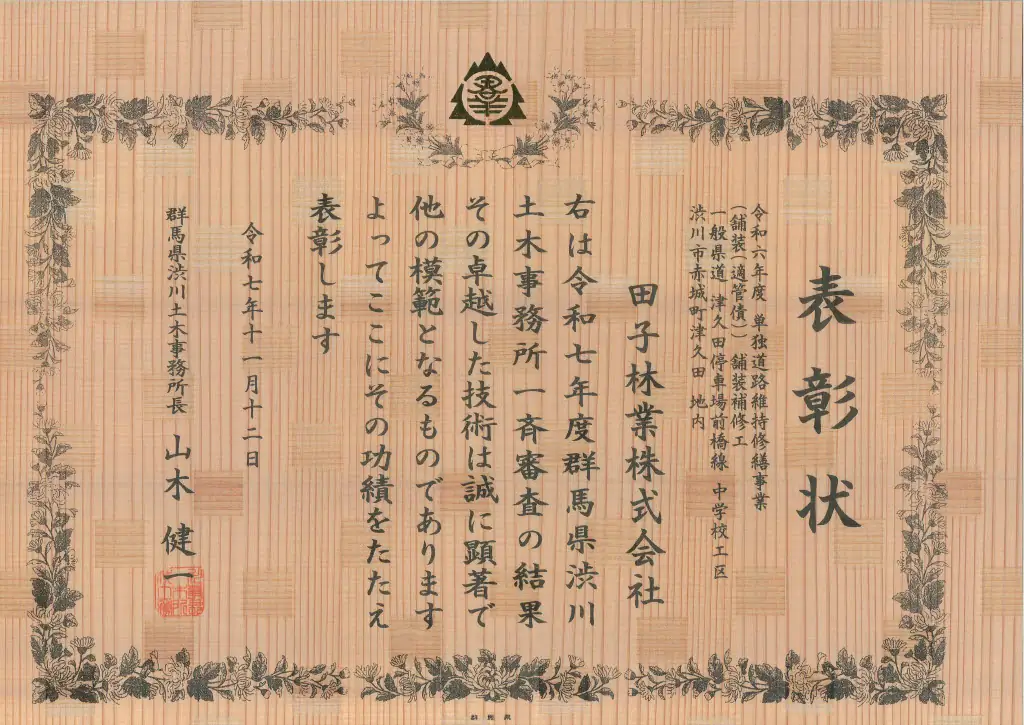 表彰状
令和六年度 単独道路維持修繕事業
(舗装(適管債)) 舗装補修工
一般県道 津久田停車場前橋線 中学校工区
渋川市赤城町津久田 地内
田子林業株式会社
右は令和七年度群馬県渋川
土木事務所一斉審査の結果
その卓越した技術は誠に顕著で
他の模範となるものであります
よってここにその功績をたたえ
表彰します
令和七年十一月十二日
群馬県渋川土木事務所長 山木 健一
群馬県